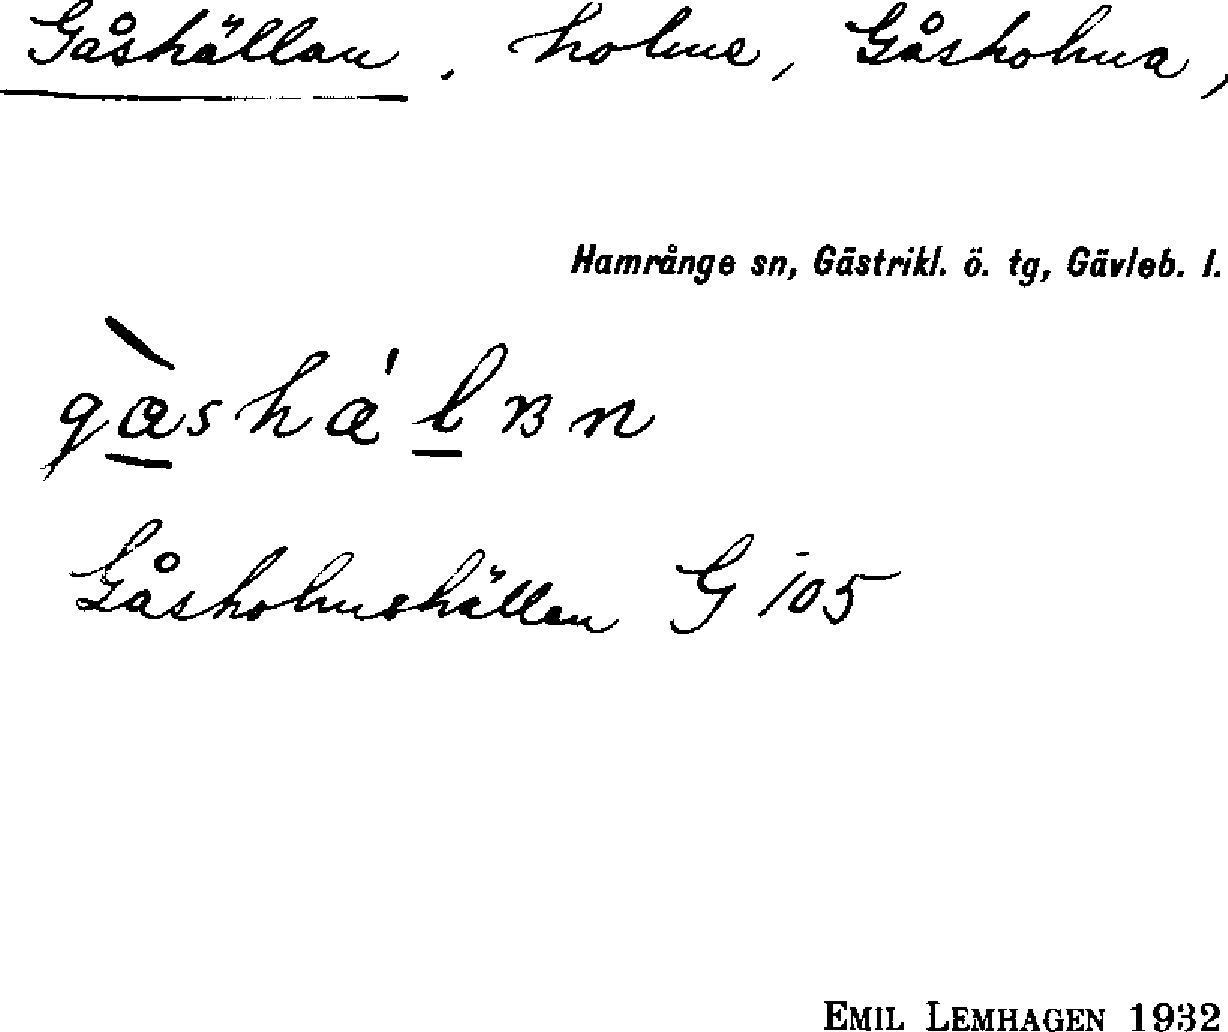 Gåshällan, holme, Gåsholma,
Hamrånge sn, Gästrikl. ö. tg, Gävleb. l.
Gåsholmshällan G 105
EMIL LEMHAGEN 1932